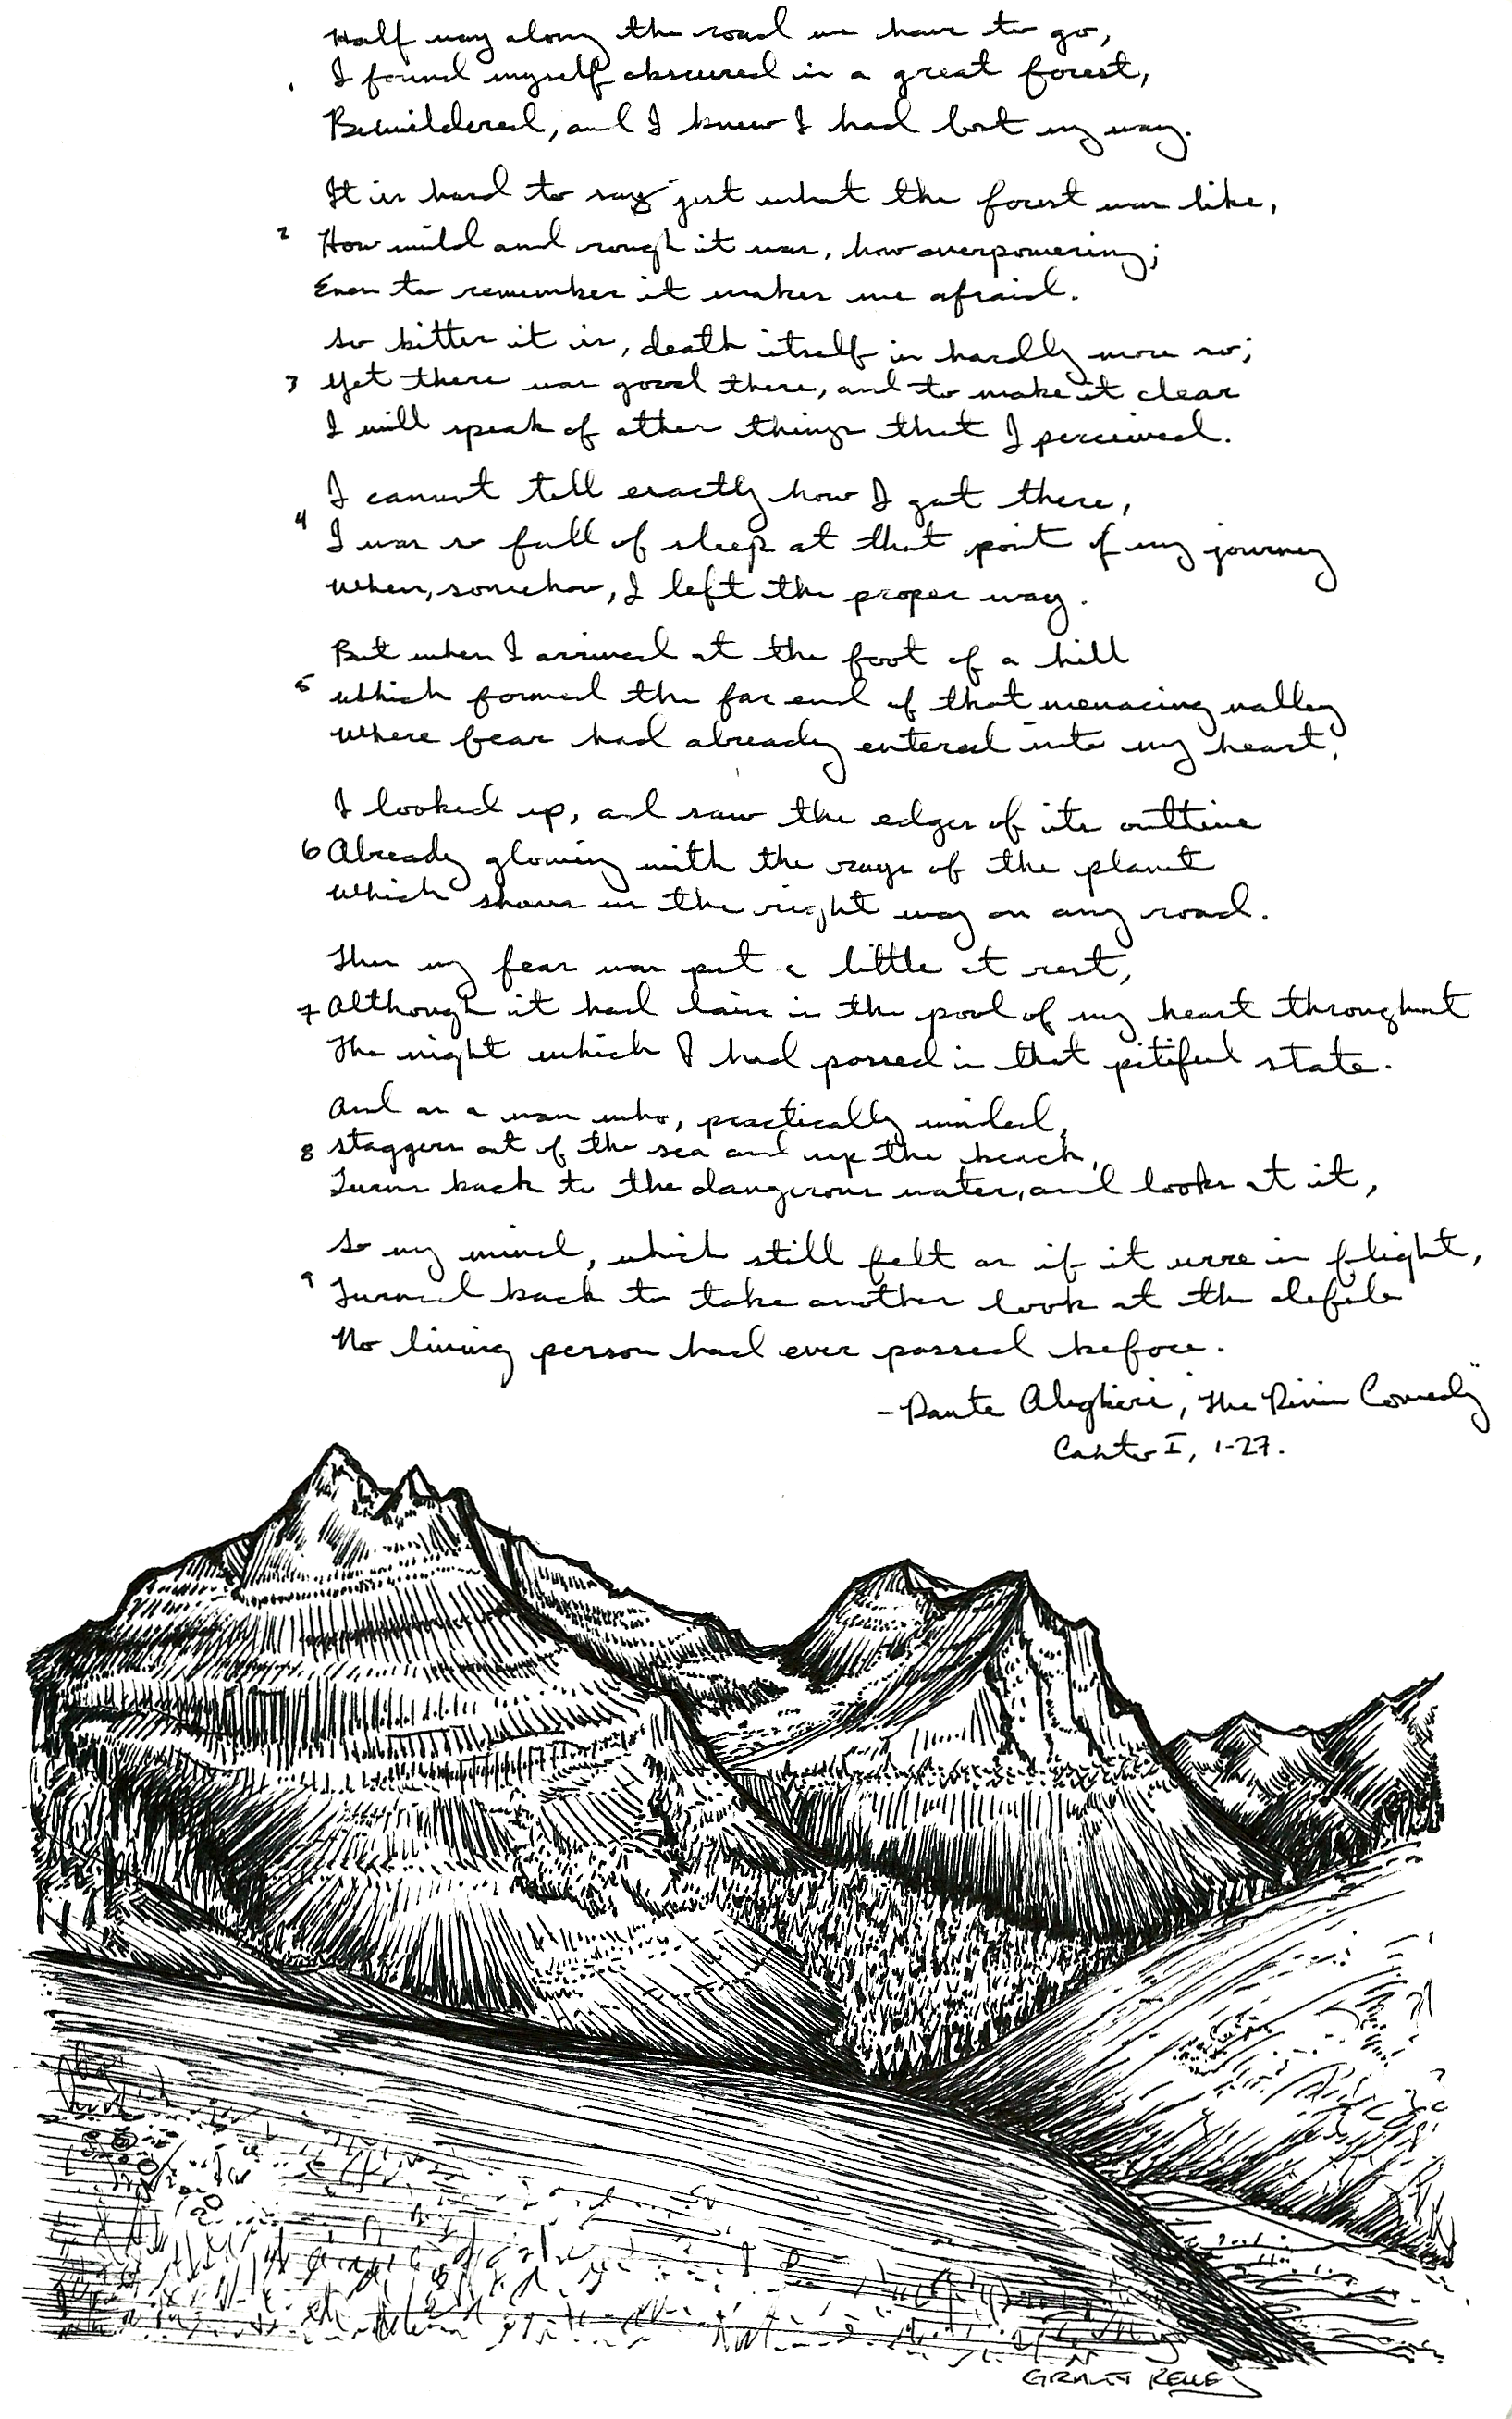 Half way along the road we have to go,
1 I found myself obscured in a great forest,
Bewildered, and I knew I had lost my way.
It is hard to say just what the forest was like,
2 How wild and rough it was, how overpowering;
Even to remember it makes me afraid.
So bitter it is, death itself is hardly more so;
3 Yet there was good there, and to make it clear
I will speak of other things that I perceived.
I cannot tell exactly how I got there,
4 I was so full of sleep at that point of my journey
When, somehow, I left the proper way.
But when I arrived at the foot of a hill
5 which formed the far end of that menacing valley
Where fear had already entered into my heart,
I looked up, and saw the edges of its outline
6 Already glowing with the rays of the planet
Which shows us the right way on any road.
Then my fear was put a little at rest,
7 Although it had lain in the pool of my heart throughout
The night which I had passed in that pitiful state.
And as a man who, practically winded,
8 staggers out of the sea and up the beach,
Turns back to the dangerous water, and looks at it,
So my mind, which still felt as if it were in flight,
9 Turned back to take another look at the defile
No living person had ever passed before.
- Dante Alighieri, "The Divine Comedy"
Canto I, 1-27.
GRANT KELLEY